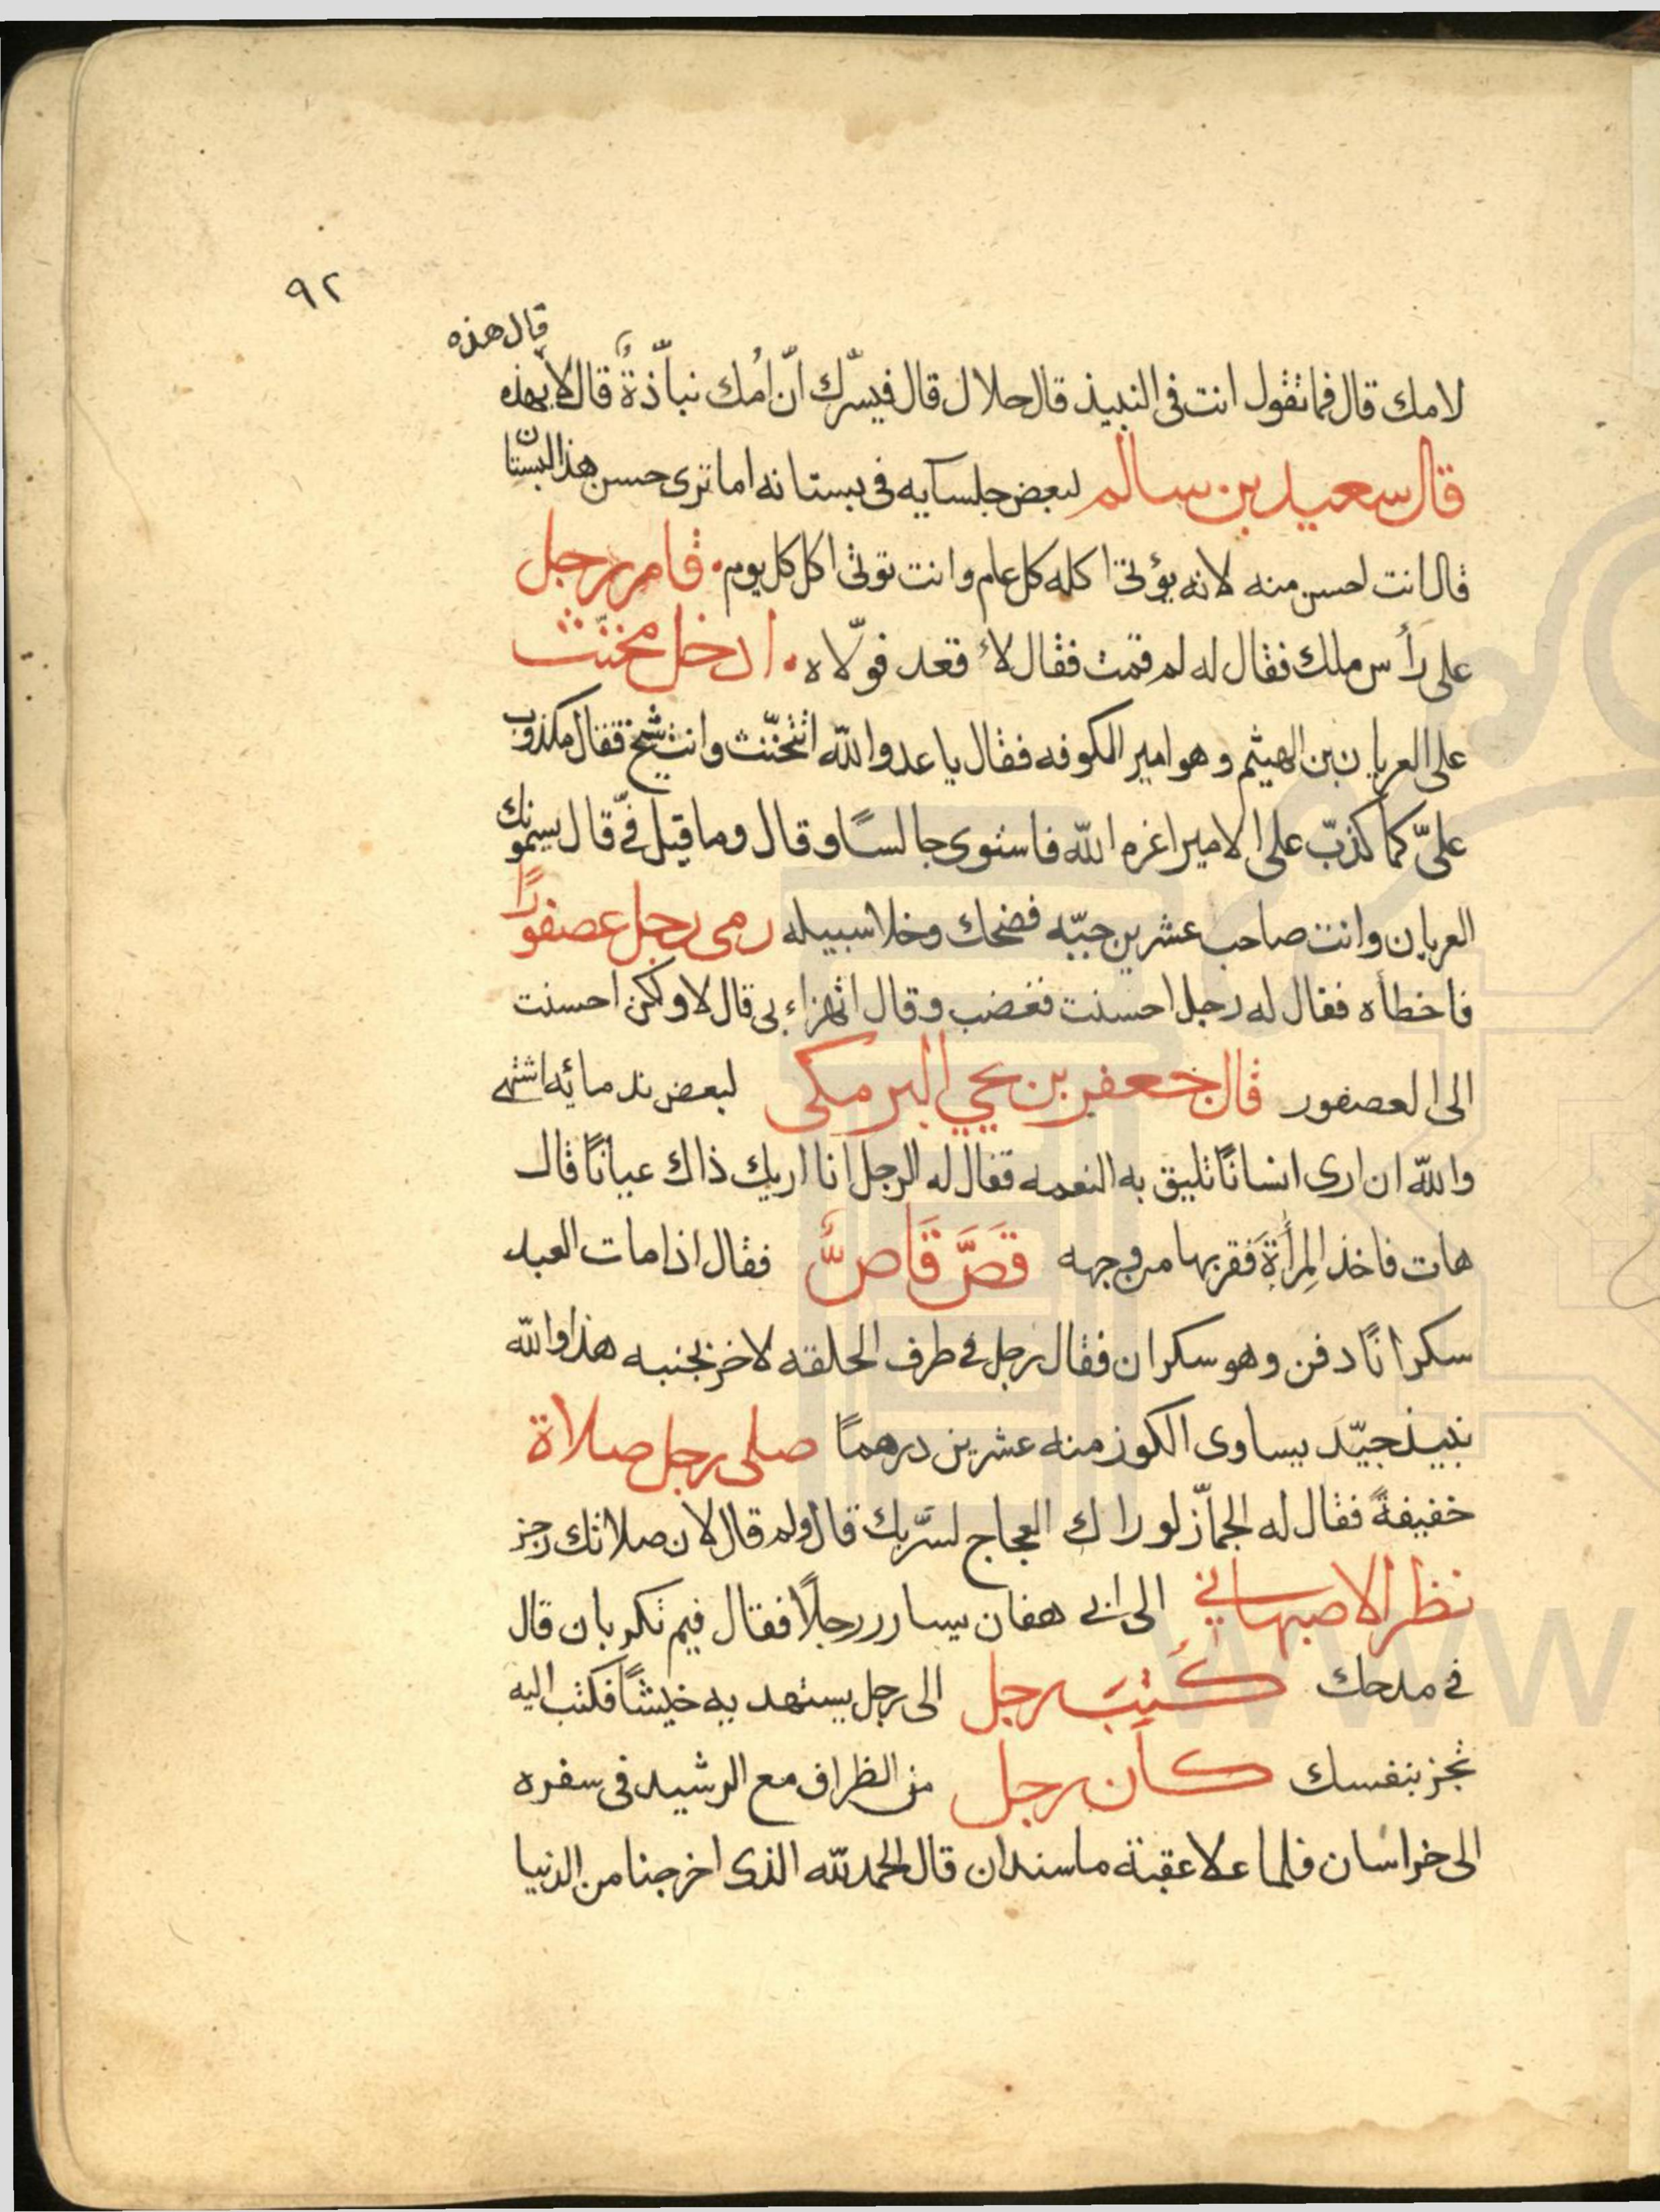 ٩٢
قال هذه
لامك قال فما تقول انت فى النبيذ قال حلال قال فيسّرك انّ امُك نباّذةً قال لا بهذه
قال سعيد بن سالم لبعض جلسايه فى بستانه اما ترى حسن هذا البستان
قال انت احسن منه لانه يؤتى اكله كل عام وانت توتى اكل كل يوم. قام رجل
على رأس ملك فقال له لم قمت فقال لا قعد فولّاه. ادخل مخنّث
على العريان بن الهيثم وهو امير الكوفه فقال يا عدو اللّه اتتخنّث وانت شيخ فقال مكذوب
علىّ كما كذبّ على الامير اعزه اللّه فاستوى جالسًا وقال وما قيل فىّ قال يسمونك
العريان وانت صاحب عشرين جبّه فضحك وخلا سبيله رمى رجل عصفورًا
فاخطأه فقال له رجل احسنت فغضب وقال اتهزاء بى قال لا ولكن احسنت
الى العصفور قال جعفر بن يحيى البرمكى لبعض ندمائه اشتهى
واللّه ان ارى انسانًا تليق به النعمه فقال له الرجل انا اريك ذاك عيانًا قال
هات فاخذ المِرأَةَ فقربها من وجهه قَصَّ قَاصٌّ فقال اذا مات العبد
سكرانًا دفن وهو سكران فقال رجل فى طرف الحلقه لاخر بجنبه هذا واللّه
نبيذ جيّد يساوى الكوز منه عشرين درهمًا صلى رجل صلاة
خفيفةً فقال له الجماّز لو راك العجاج لسّر بك قال ولم قال لان صلاتك رجز
نظر الاصبهاني الى ابى هفان يسارر رجلًا فقال فيم تكذبان قال
فى مدحك كُتِبَ رجل الى رجل يستهديه خيشًا فكتب اليه
تجز بنفسك كان رجل من الظراف مع الرشيد فى سفره
الى خراسان فلما علا عقبة ماسندان قال الحمد للّه الذى اخرجنا من الدنيا